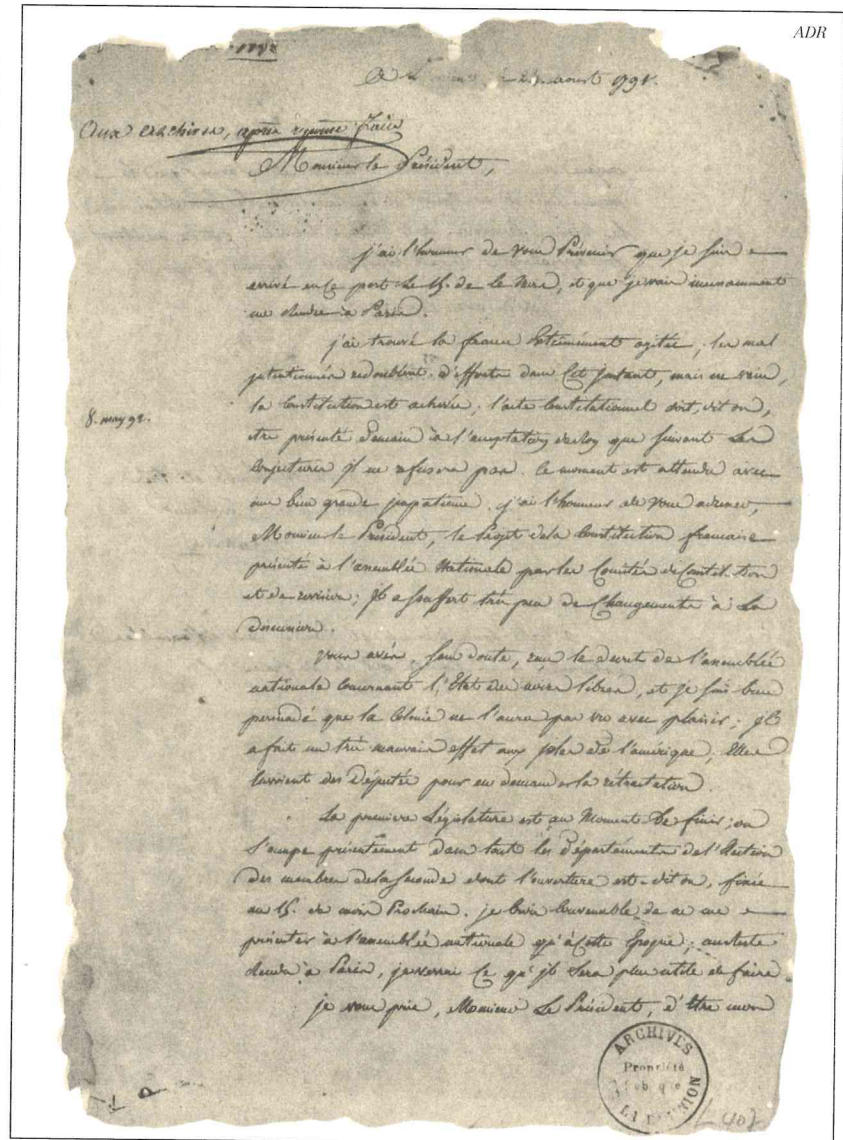 ADR
A L aoust 1791.
aux archives, après reponse faite
Monsieur le Président,
j'ai l'honneur de vous Prévenir que je suis
arrivé en ce port le 15. de ce mois, et que je vais incessamment
me rendre à Paris.
j'ai trouvé la france Extrêmement agitée, les mal
jntentionnés redoublent d'efforts dans Cet jnstant, mais en vain,
la Constitution est achevée, l'acte Constitutionnel doit, dit on,
8. may 92.
être présenté demain à l'acceptation du Roy que suivant les
Conjectures jl ne refusera pas. Ce moment est attendu avec
une bien grande jmpatience. j'ai l'honneur de vous adresser,
Monsieur le Président, le Projet de la Constitution française
présenté à l'assemblée Nationale par les Comités de Constitution
et de revision; jl a souffert très peu de Changements à La
discussion.
vous avés, sans doute, reçu le decret de l'assemblée
nationale Concernant l'Etat des noirs libres, et je suis bien
persuadé que la Colonie ne l'aura pas vu avec plaisir; jl
a fait un très mauvais effet aux jsles de l'amérique, Elles
Envoient des Députés pour en demander la rétractation.
La premiere Législature est au Moment de finir; on
s'occupe présentement dans tout les Départements de l'Election
des membres de la seconde dont l'ouverture est, dit on, fixée
au 15. du mois Prochain. je Crois Convenable de ne me
présenter à l'assemblée nationale qu'à Cette Epoque; au reste
rendu à Paris, je verrai Ce qu'jl sera plus utile de faire.
je vous prie, Monsieur Le Président, d'être mon
ARCHIVES
Propriété
Publique
LA REUNION
L 40